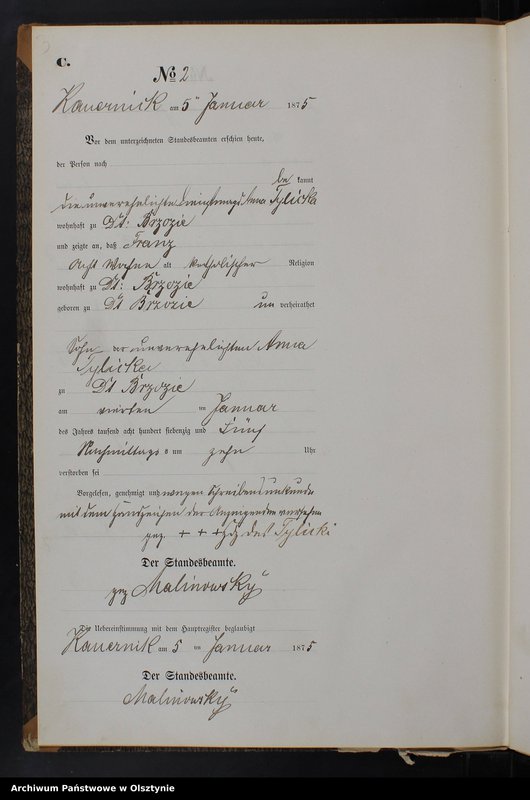 C.
No 2
Kauernick am 5ten Januar 1875
Vor dem unterzeichneten Standesbeamten erschien heute,
der Person nach
be kannt
die unverehelichte Anna Tylicka
wohnhaft zu Dt: Brzozie
und zeigte an, daß Franz
Acht Wochen alt katholischer Religion
wohnhaft zu Dt: Brzozie
geboren zu Dt Brzozie un verheirathet
Sohn der unverehelichten Anna
Tylicka
zu Dt Brzozie
am vierten ten Januar
des Jahres tausend acht hundert siebenzig und Fünf
Nachmittags s um zehn Uhr
verstorben sei
Vorgelesen, genehmigt und wegen Schreibensunkunde
mit dem Handzeichen der Anzeigenden versehen
gez. + + + Hdz der Tylicki
Der Standesbeamte.
gez Malinowsky
Die Uebereinstimmung mit dem Hauptregister beglaubigt
Kauernik am 5 ten Januar 1875
Der Standesbeamte.
Malinowsky
Archiwum Państwowe w Olsztynie